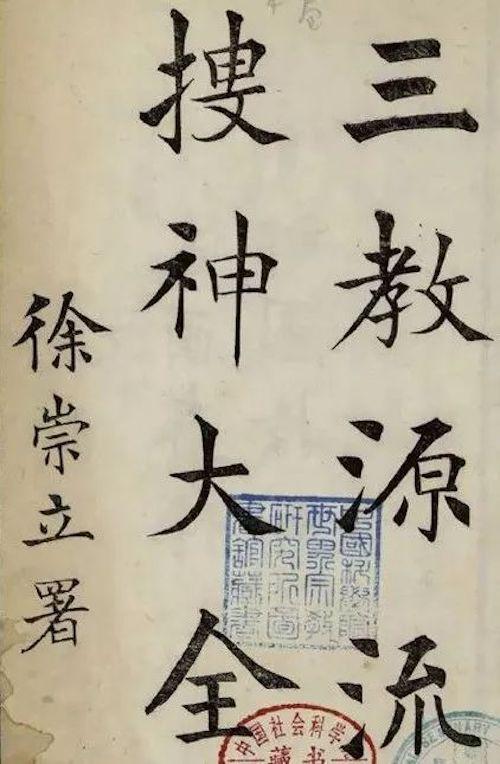 三教源流
搜神大全
徐崇立署
中国社会科学
藏书